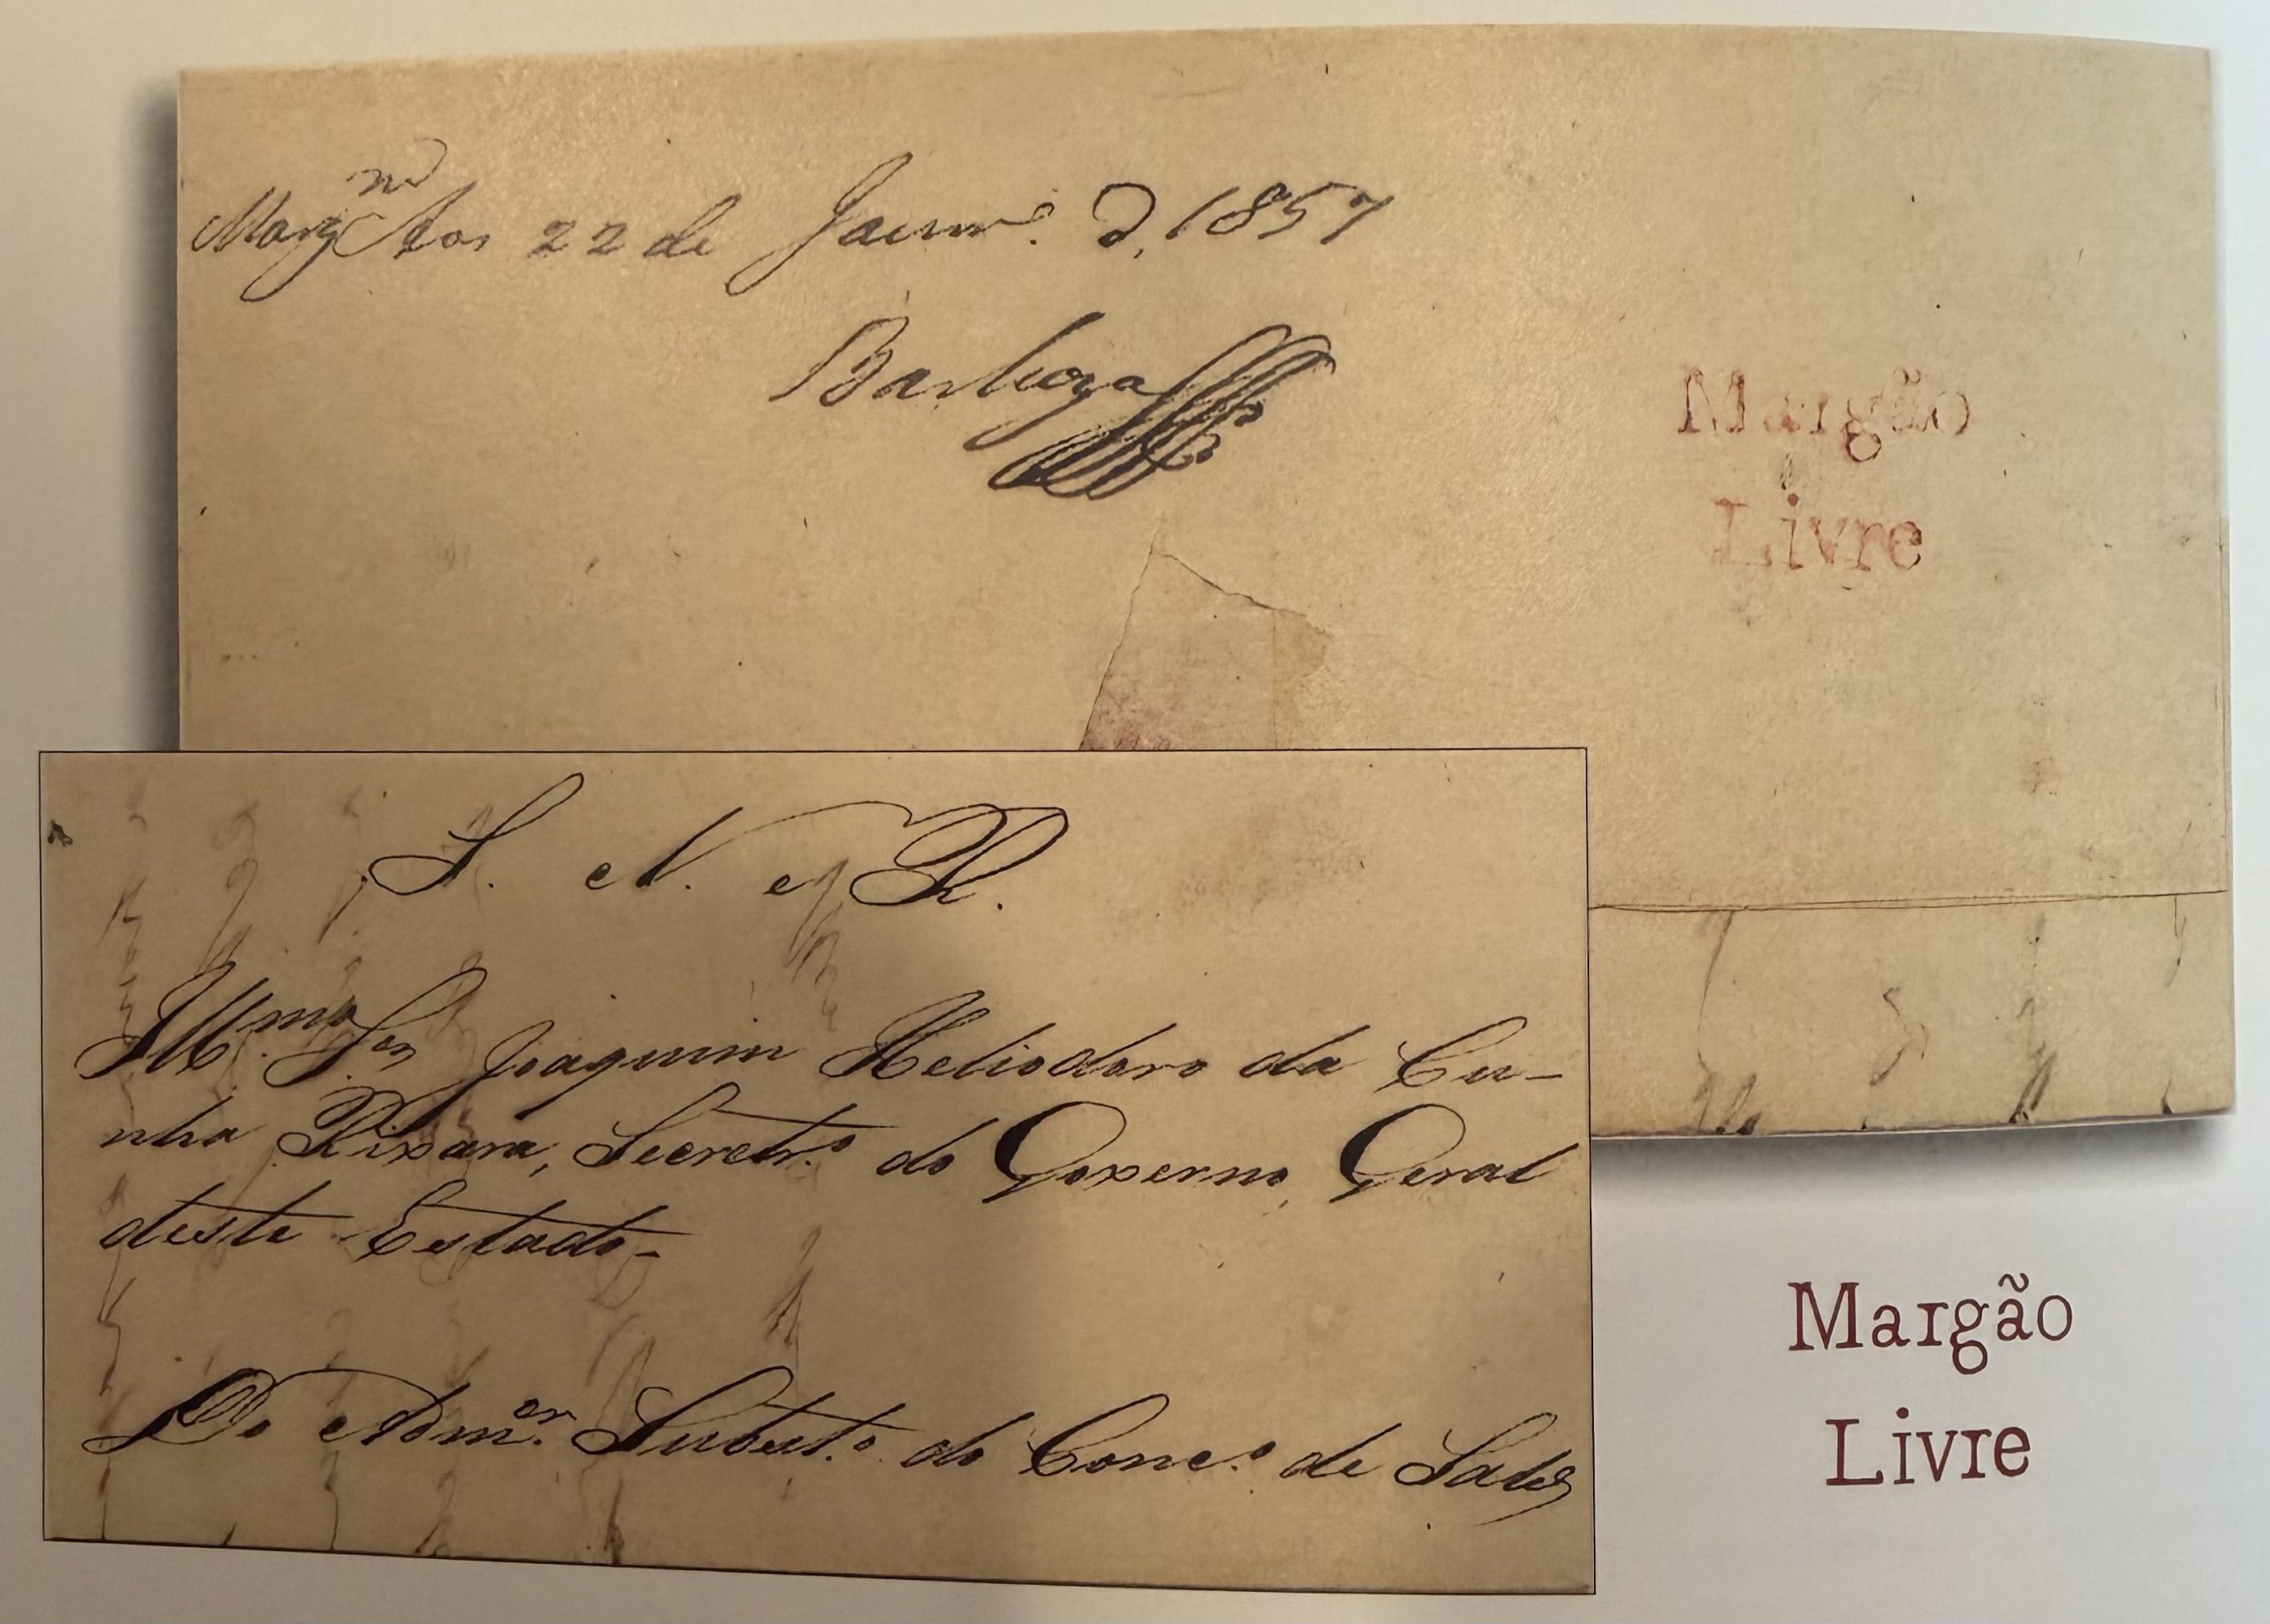 Marg.m aos 22 de Janr.º d. 1857
Barboza
Margão
Livre
S. N. e R.
Illmo. Snr. Joaquim Heliodoro da Cu-
nha Rivara, Secretr.º do Governo Geral
deste Estado-
Do Adm.or Substt.º do Conc.º de Salcˢ
Margão
Livre